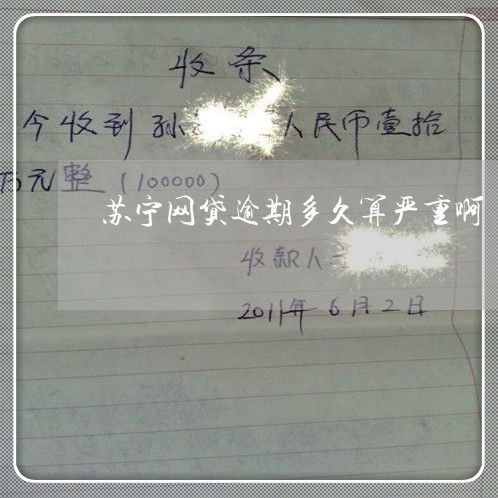 收条
今收到孙 人民币壹拾
万元整（100000）
苏宁网贷逾期多久算严重啊
收款人
2011年6月2日